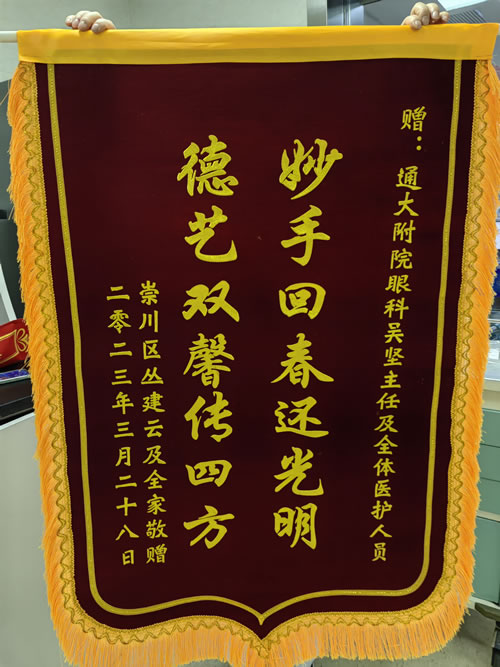 赠：通大附院眼科吴坚主任及全体医护人员
妙手回春还光明
德艺双馨传四方
崇川区丛建云及全家敬赠
二零二三年三月二十八日